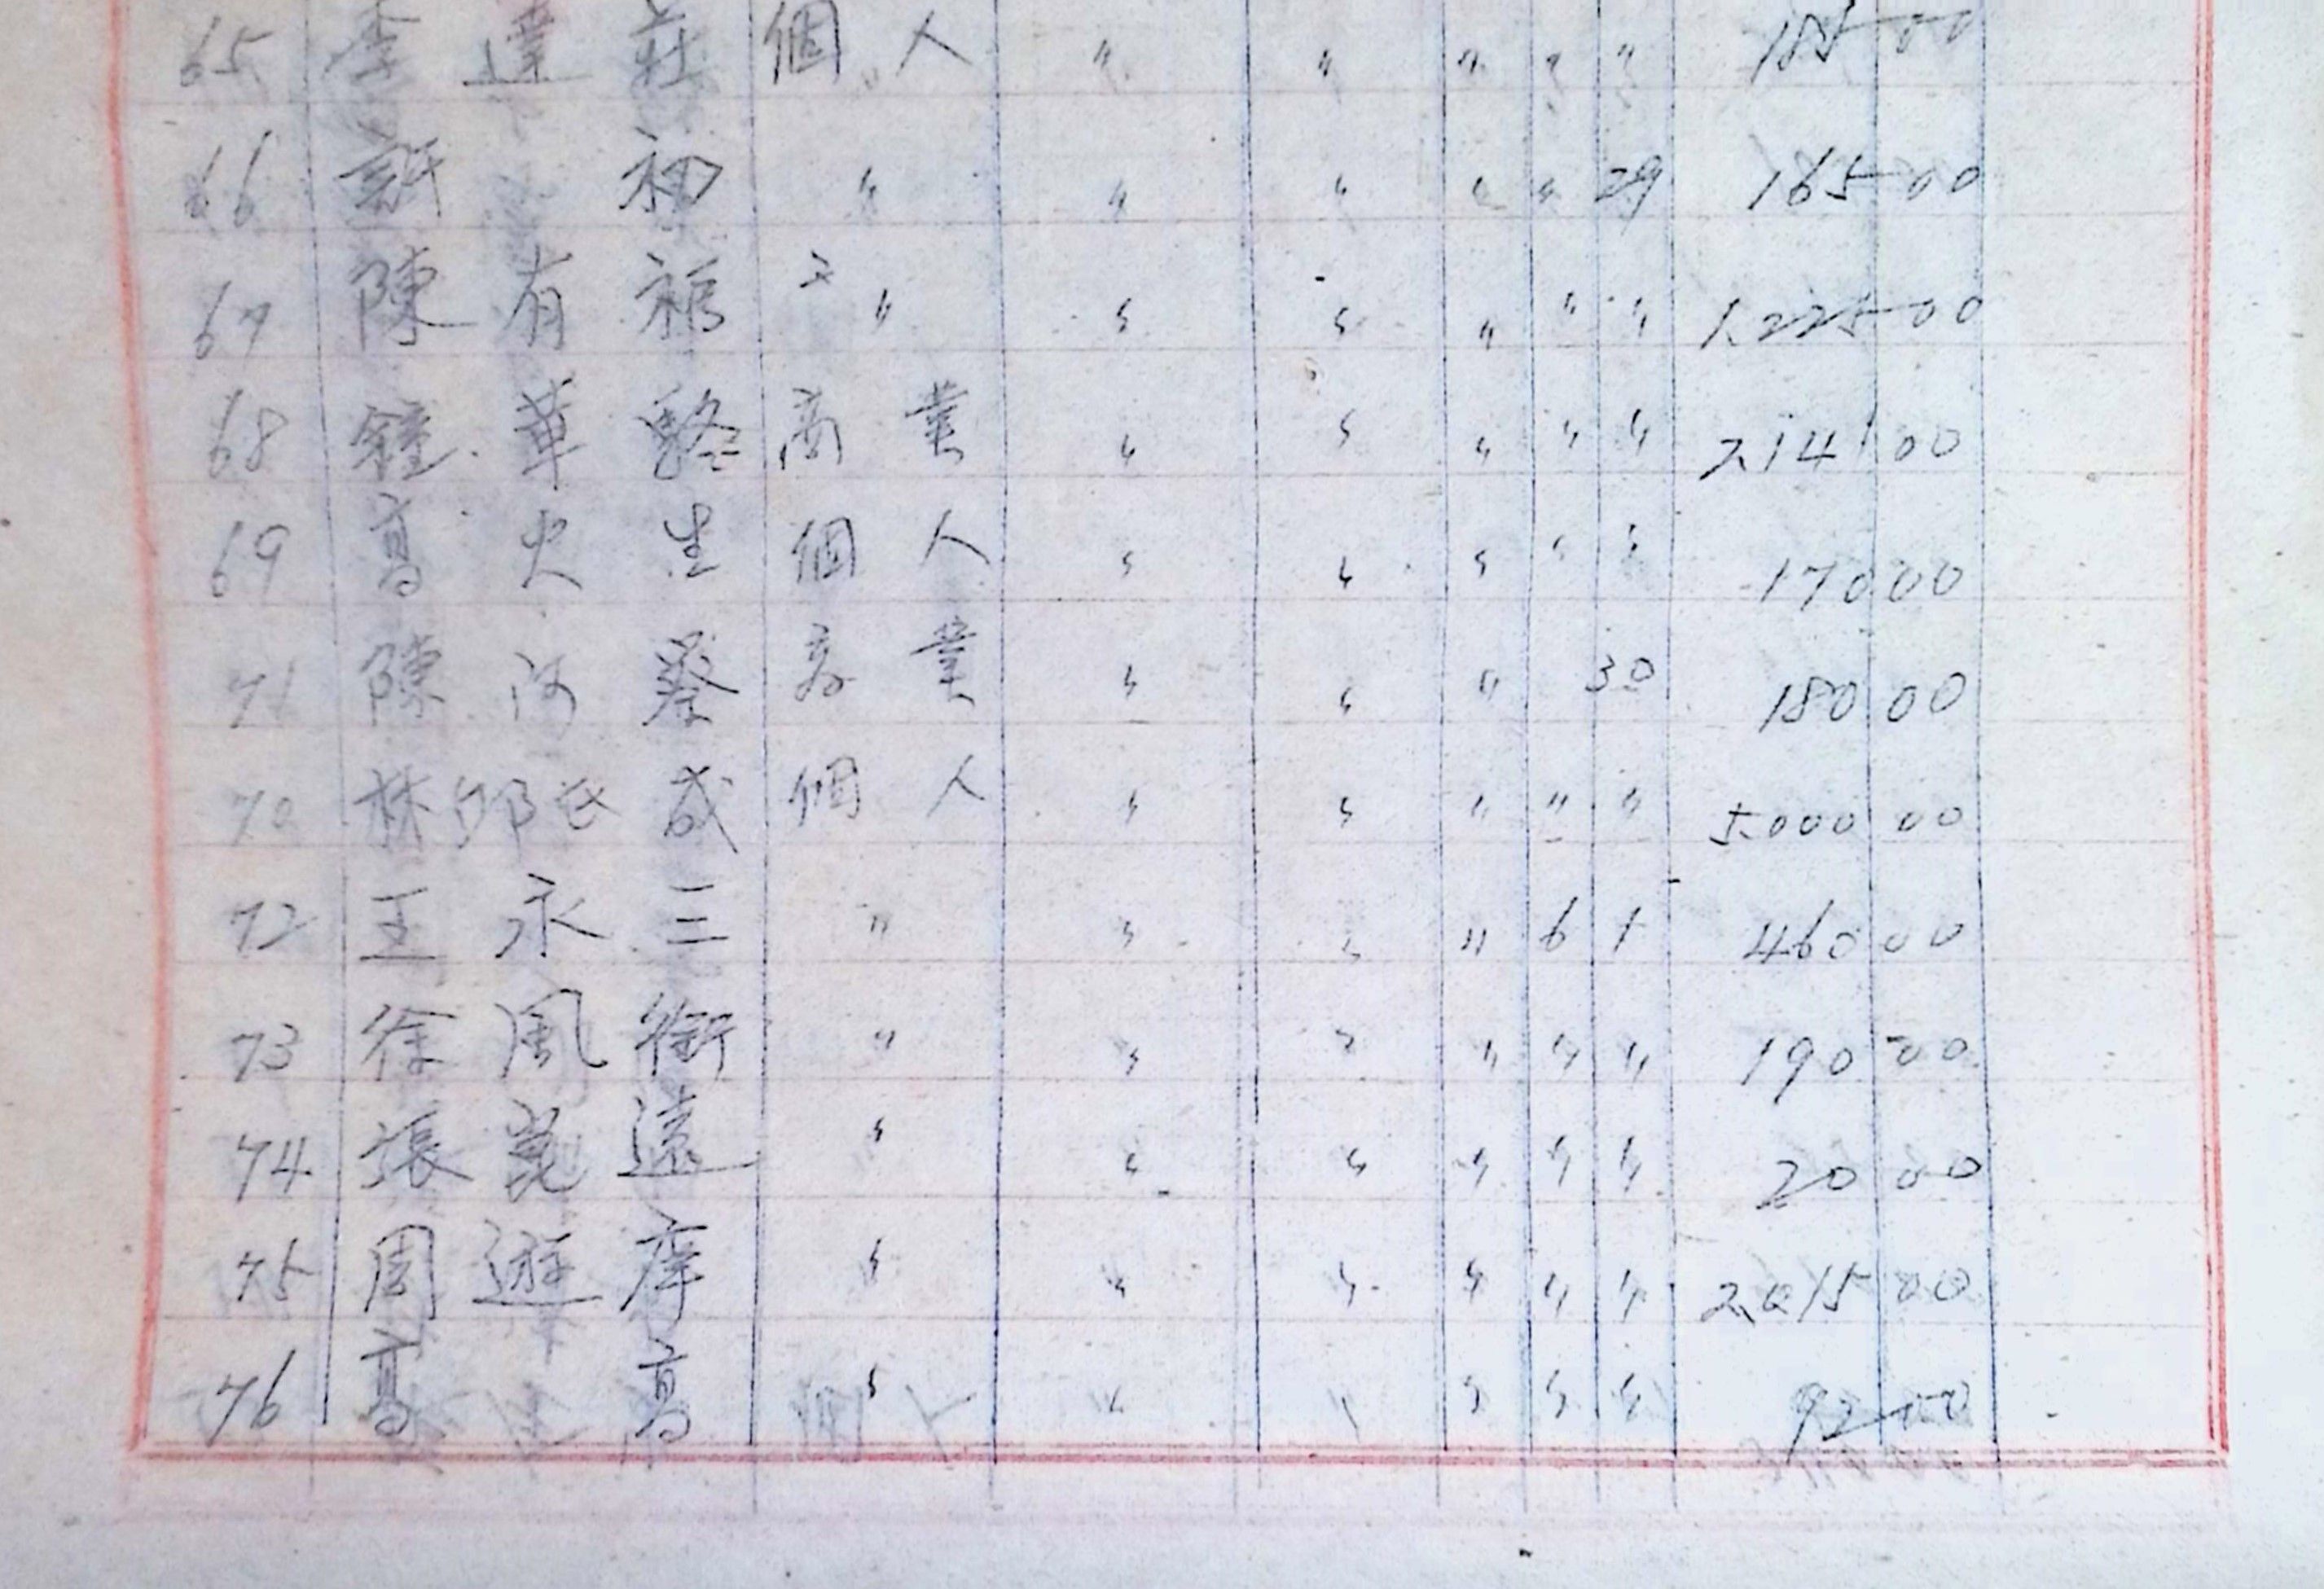 65 李達莊 個人 〃 〃 〃 〃 〃 185 00
66 許初 〃 〃 〃 〃 〃 29 165 00
67 陳有福 〃 〃 〃 〃 〃 〃 1,225 00
68 鐘華 商業 〃 〃 〃 〃 〃 2,141 00
69 高火生 個人 〃 〃 〃 〃 〃 170 00
71 陳河發 商業 〃 〃 〃 30 180 00
70 林邱氏成 個人 〃 〃 〃 〃 〃 5,000 00
72 王永三 〃 〃 〃 〃 6 1 460 00
73 徐風衛 〃 〃 〃 〃 〃 〃 190 00
74 張遠 〃 〃 〃 〃 〃 〃 20 00
75 周遊 〃 〃 〃 〃 〃 〃 2,015 00
76 高高 〃 〃 〃 〃 〃 92 00